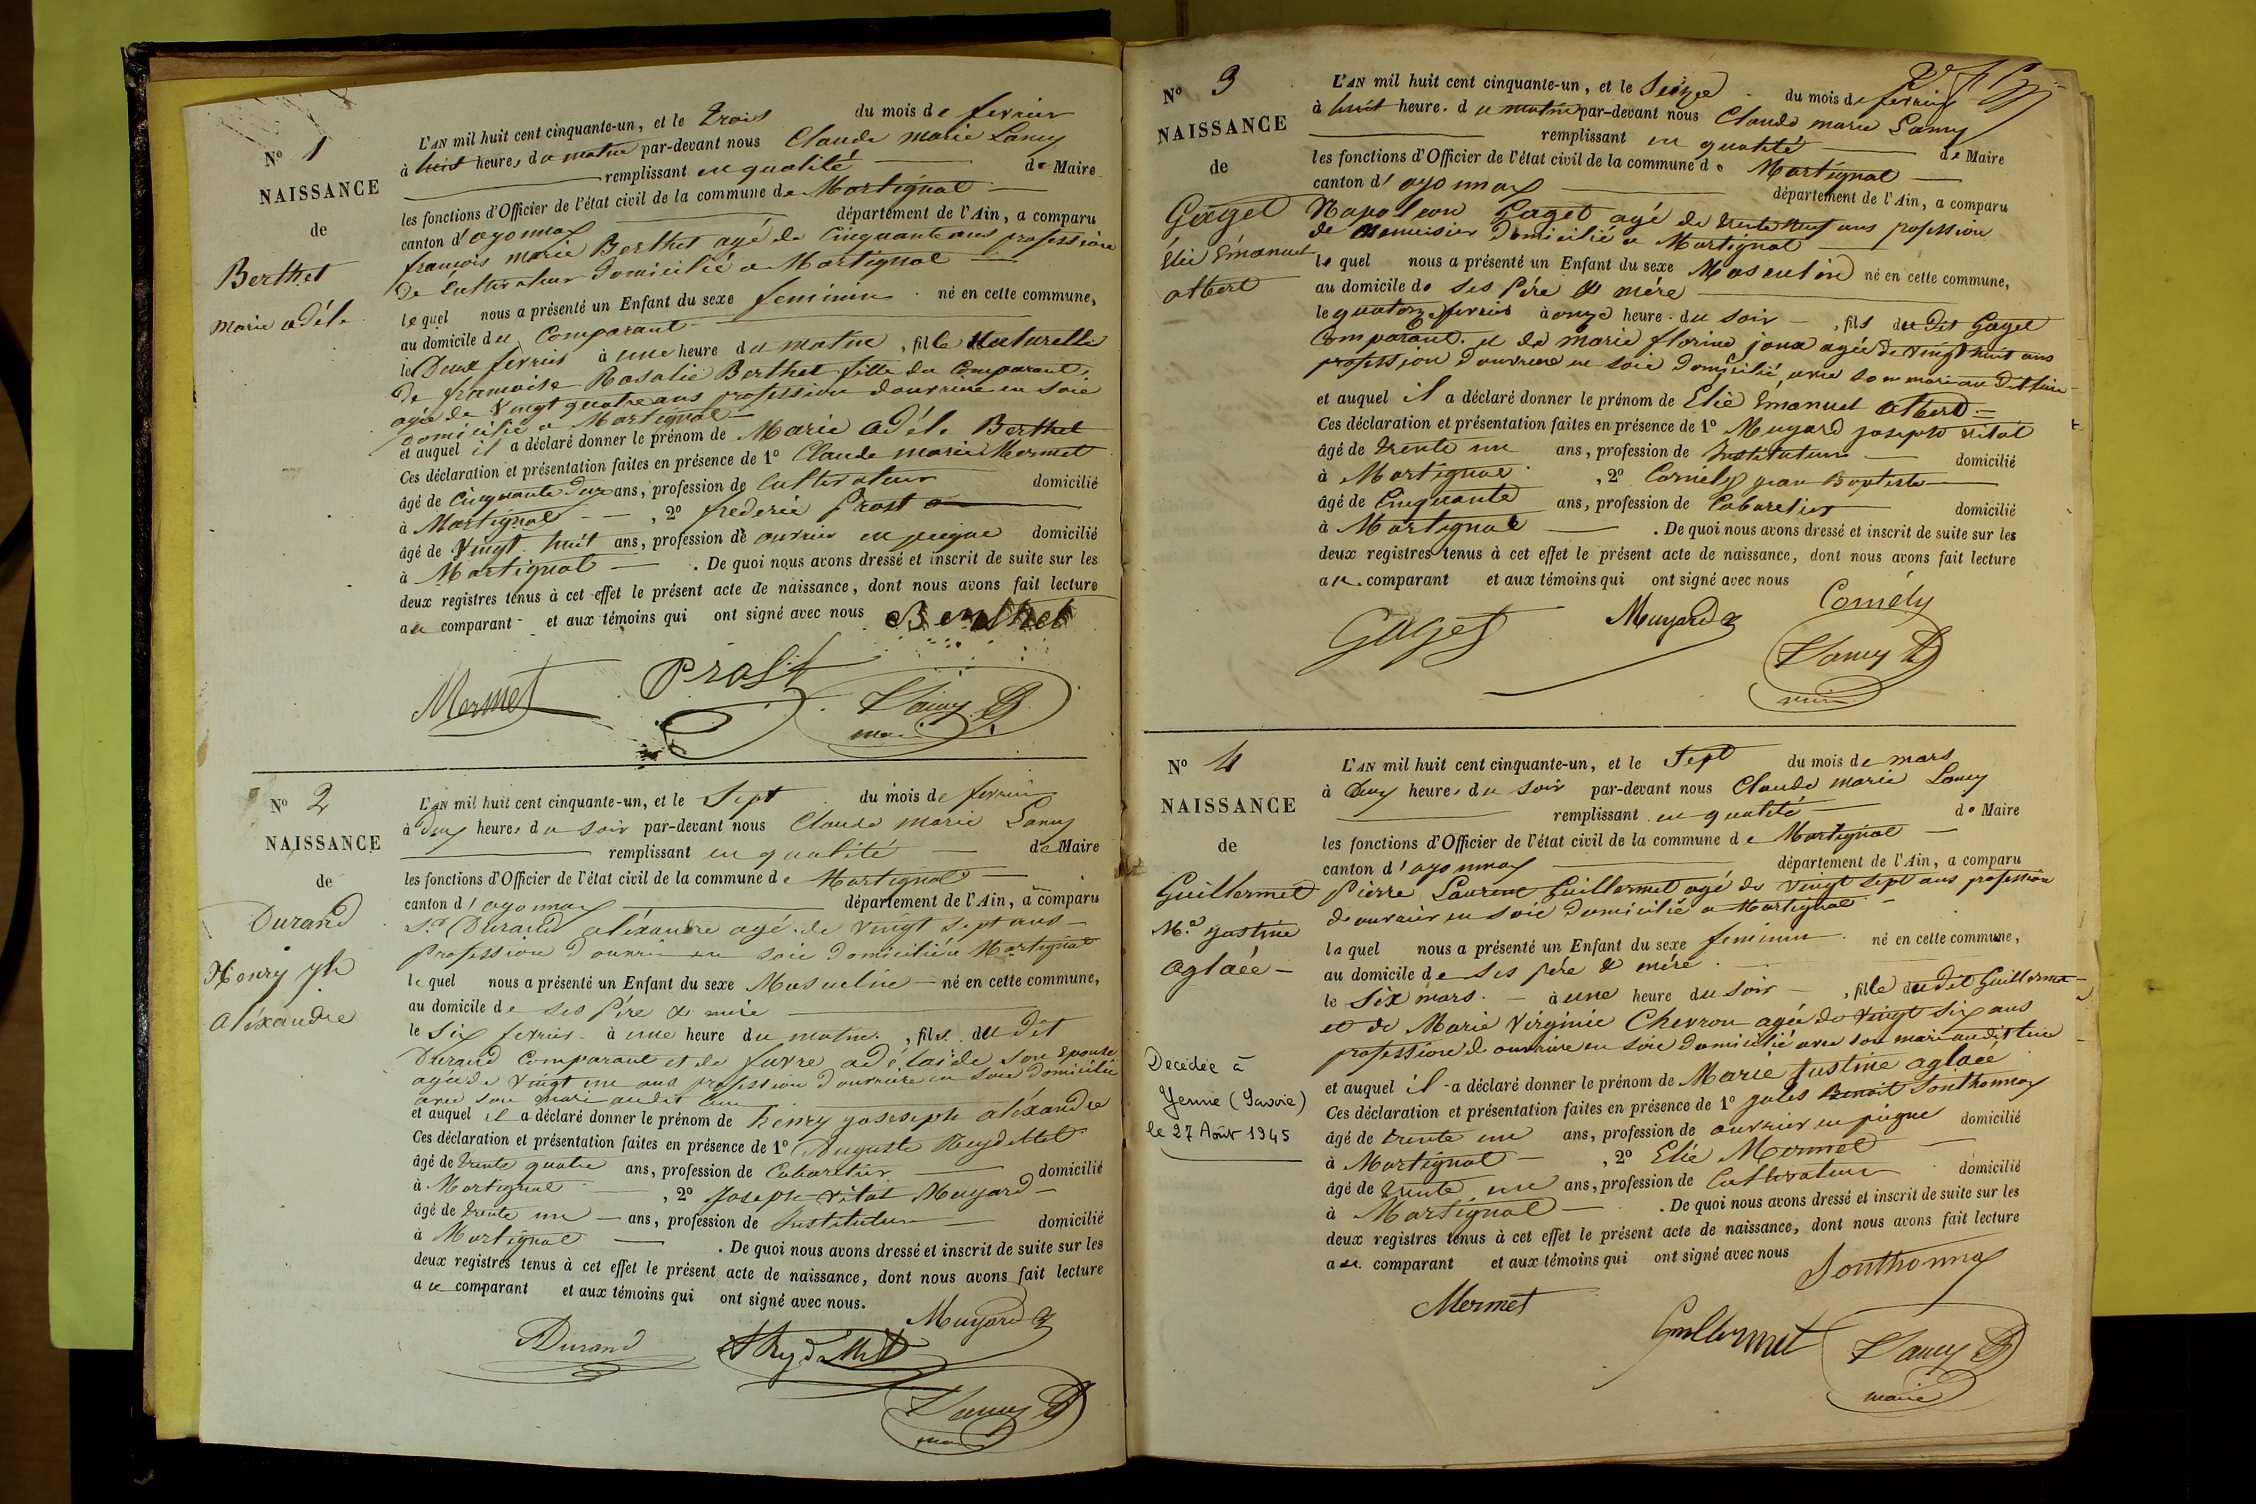 N° 1
NAISSANCE
de
Berthet
Marie adéle
L'AN mil huit cent cinquante-un, et le trois du mois de fevrier
à huit heures du matin par-devant nous Claude marie Lancy
remplissant en qualité de Maire
les fonctions d'Officier de l'état civil de la commune de Martignat
canton d'oyonnax département de l'Ain, a comparu
françois marie Berthet agé de Cinquante ans profession
de Cultivateur domicilié a Martignat
lequel nous a présenté un Enfant du sexe feminin né en cette commune,
au domicile du Comparant
le Deux fevrier à une heure du matin, fille Naturelle
de francoise Rosalie Berthet fille du Comparant,
agée de vingt quatre ans profession d'ouvriere en soie
domicilie a Martignat
et auquel il a déclaré donner le prénom de Marie adéle Berthet
Ces déclaration et présentation faites en présence de 1° Claude marie Mermet
âgé de Cinquante deux ans, profession de Cultivateur domicilié
à Martignat, 2° frederic Prost
âgé de Vingt huit ans, profession de ouvrier en peigne domicilié
à Martignat. De quoi nous avons dressé et inscrit de suite sur les
deux registres tenus à cet effet le présent acte de naissance, dont nous avons fait lecture
au comparant et aux témoins qui ont signé avec nous Berthet
Mermet Prost Lancy
maire
N° 2
NAISSANCE
de
Durand
Henry jh
aléxandre
L'AN mil huit cent cinquante-un, et le Sept du mois de fevrier
à deux heures du soir par-devant nous Claude marie Lancy
remplissant en qualité de Maire
les fonctions d'Officier de l'état civil de la commune de Martignat
canton d'oyonnax département de l'Ain, a comparu
Sr Durand aléxandre agé de vingt sept ans
profession d'ouvrier en soie domicilié a Martignat
lequel nous a présenté un Enfant du sexe Masculin né en cette commune,
au domicile de ses Pére & mére
le six fevrier à une heure du matin, fils du dit
Durand Comparant et de favre adélaïde son épouse
agée de vingt un ans profession d'ouvriere en soie domicilie
avec son mari audit lieu
et auquel il a déclaré donner le prénom de henry joseseph aléxandre
Ces déclaration et présentation faites en présence de 1° Auguste Reydellet
âgé de trente quatre ans, profession de Cabaretier domicilié
à Martignat, 2° Joseph vital Muyard
âgé de trente un ans, profession de Instituteur domicilié
à Martignat. De quoi nous avons dressé et inscrit de suite sur les
deux registres tenus à cet effet le présent acte de naissance, dont nous avons fait lecture
au comparant et aux témoins qui ont signé avec nous.
Muyard
ADurand AReydellet
Lancy
maire
N° 3
NAISSANCE
de
Gaget
Élie Émanuel
albert
L'AN mil huit cent cinquante-un, et le Seize du mois de fevrier
à huit heure. du matin par-devant nous Claude marie Lancy
remplissant en qualité de Maire
les fonctions d'Officier de l'état civil de la commune de Martignat
canton d'oyonnax département de l'Ain, a comparu
Napoleon Gaget agé de trente neuf ans profession
de Menuisier domicilié a Martignat
lequel nous a présenté un Enfant du sexe Masculin né en cette commune,
au domicile de ses Pére & mére
le quatorze fevrier à onze heure. du soir, fils du dit Gaget
Comparant. et de marie florine joux agée de vingt huit ans
profession d'ouvriere en soie domicilié avec son mari au dit lieu
et auquel il a déclaré donner le prénom de Elie Emanuel albert
Ces déclaration et présentation faites en présence de 1° Muyard joseph vital
âgé de trente un ans, profession de Instituteur domicilié
à Martignat, 2° Cornély jean Baptiste
âgé de Cinquante ans, profession de Cabaretier domicilié
à Martignat. De quoi nous avons dressé et inscrit de suite sur les
deux registres tenus à cet effet le présent acte de naissance, dont nous avons fait lecture
au comparant et aux témoins qui ont signé avec nous
Gaget Muyard Cornély
Lancy
maire
N° 4
NAISSANCE
de
Guillermet
Me justine
aglaée
Décédée à
Yenne (Savoie)
le 27 Août 1945
L'AN mil huit cent cinquante-un, et le Sept du mois de mars
à Deux heures du soir par-devant nous Claude marie Lancy
remplissant en qualité de Maire
les fonctions d'Officier de l'état civil de la commune de Martignat
canton d'oyonnax département de l'Ain, a comparu
Pierre Laurent Guillermet agé de vingt sept ans profession
de ouvrier en soie domicilié a Martignat
lequel nous a présenté un Enfant du sexe feminin né en cette commune,
au domicile de ses pére & mére
le six mars. à une heure du soir, fille dudit Guillermet
et de Marie Virginie Chevron agée de vingt six ans
profession d'ouvriere en soie domicilié avec son mari audit lieu
et auquel il a déclaré donner le prénom de Marie justine aglaéé
Ces déclaration et présentation faites en présence de 1° jules Benoit Sonthonnax
âgé de trente un ans, profession de ouvrier en peigne domicilié
à Martignat, 2° Elie Mermet
âgé de trente un ans, profession de Cultivateur domicilié
à Martignat. De quoi nous avons dressé et inscrit de suite sur les
deux registres tenus à cet effet le présent acte de naissance, dont nous avons fait lecture
au comparant et aux témoins qui ont signé avec nous
Sonthonnax
Mermet Guillermet Lancy
maire